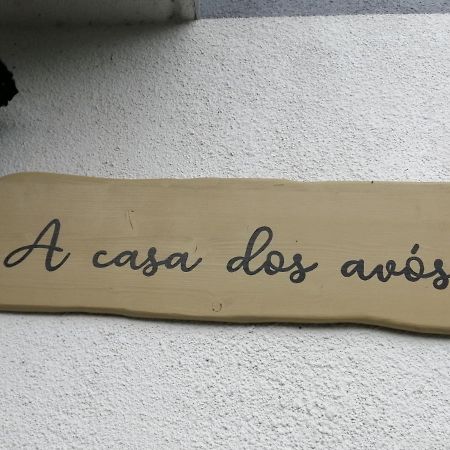 A casa dos avós